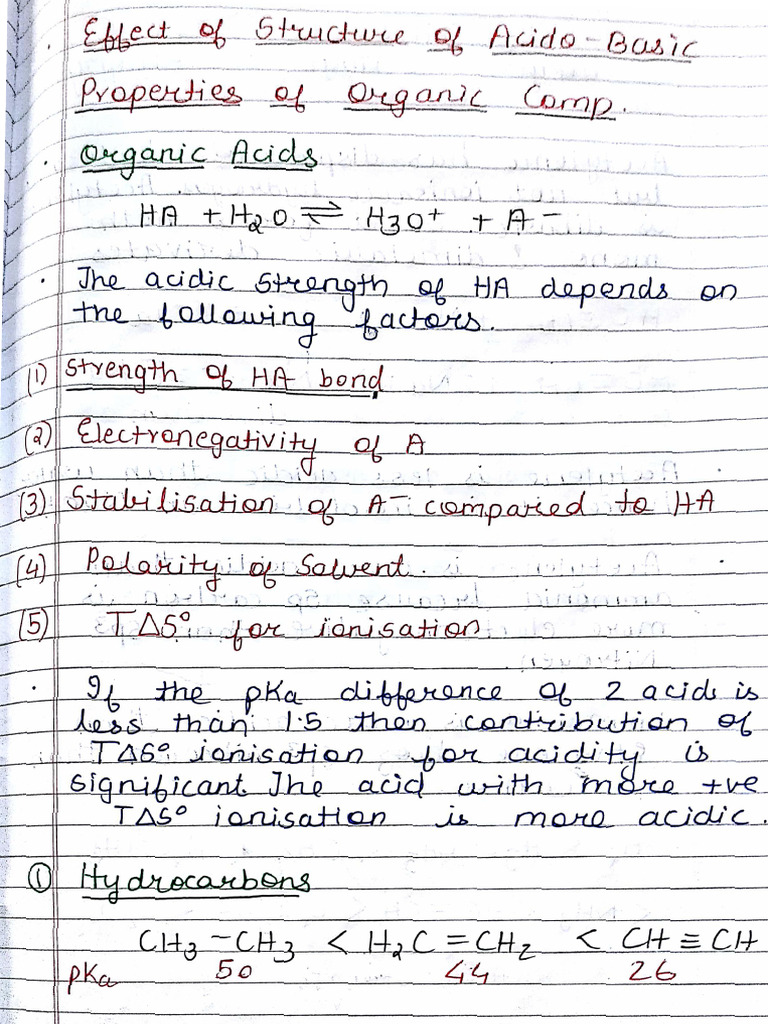 Effect of Structure of Acido-Basic
Properties of Organic Comp.
Organic Acids
HA + H2O ⇌ H3O+ + A-
The acidic strength of HA depends on
the following factors.
(1) Strength of HA bond
(2) Electronegativity of A
(3) Stabilisation of A- compared to HA
(4) Polarity of Solvent.
(5) TΔS° for ionisation
If the pKa difference of 2 acid is
less than 1.5 then contribution of
TΔS° ionisation for acidity is
significant. The acid with more +ve
TΔS° ionisation is more acidic.
① Hydrocarbons
CH3-CH3 < H2C=CH2 < CH≡CH
pKa 50 44 26